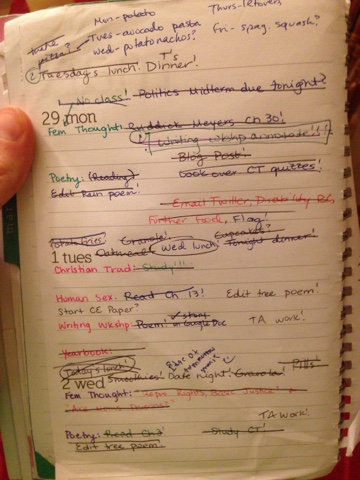 Mon - potato
Thurs - leftovers
Tues - avocado pasta
Fri - spag. squash?
pizza?
Wed - potato nachos?
T's
② Tuesdays lunch! Dinner!
No class! Politics Midterm due tonight?
29 mon
Fem Thought: Ruddick, Meyers Ch 30!
Writing wkshp
Blog Post!
Poetry: (Reading)
Look over CT quizzes!
Edit Rain poem!
Email Twitter, Disability
Further Food, Flag!
Potato fries! Granola! Cupcakes?
Oatmeal! Wed lunch! Tonight dinner!
1 tues
Christian Trad: Study!!!
Human Sex: Read Ch 13! Edit tree poem!
Start CE Paper?
Writing Wkshp: Poem! on Google Doc
TA work!
Yearbook:
Today's lunch! Pills!
2 wed Smoothies! Date night! Granola!
Fem Thought: "Rights, Basic Justice" +
"Are Women Human?"
TA work!
Poetry: Read Ch 7 Study CT!
Edit tree poem